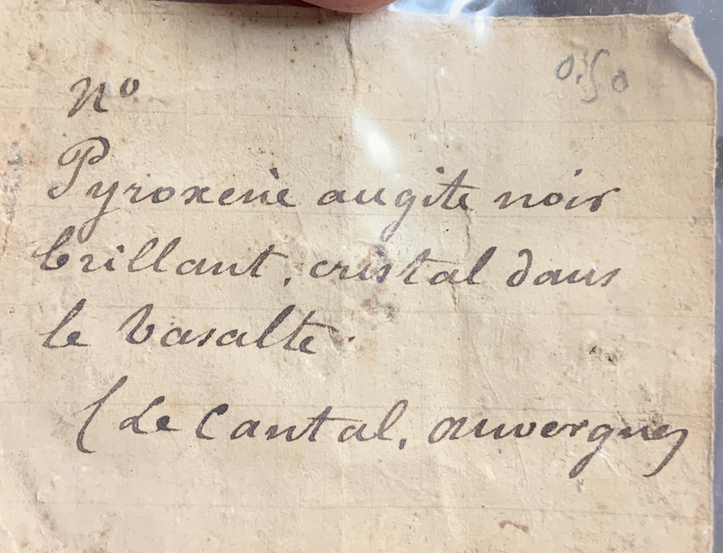 0.50
No
Pyroxene augite noir
brillant, cristal dans
le basalte.
(Le Cantal, auvergne)